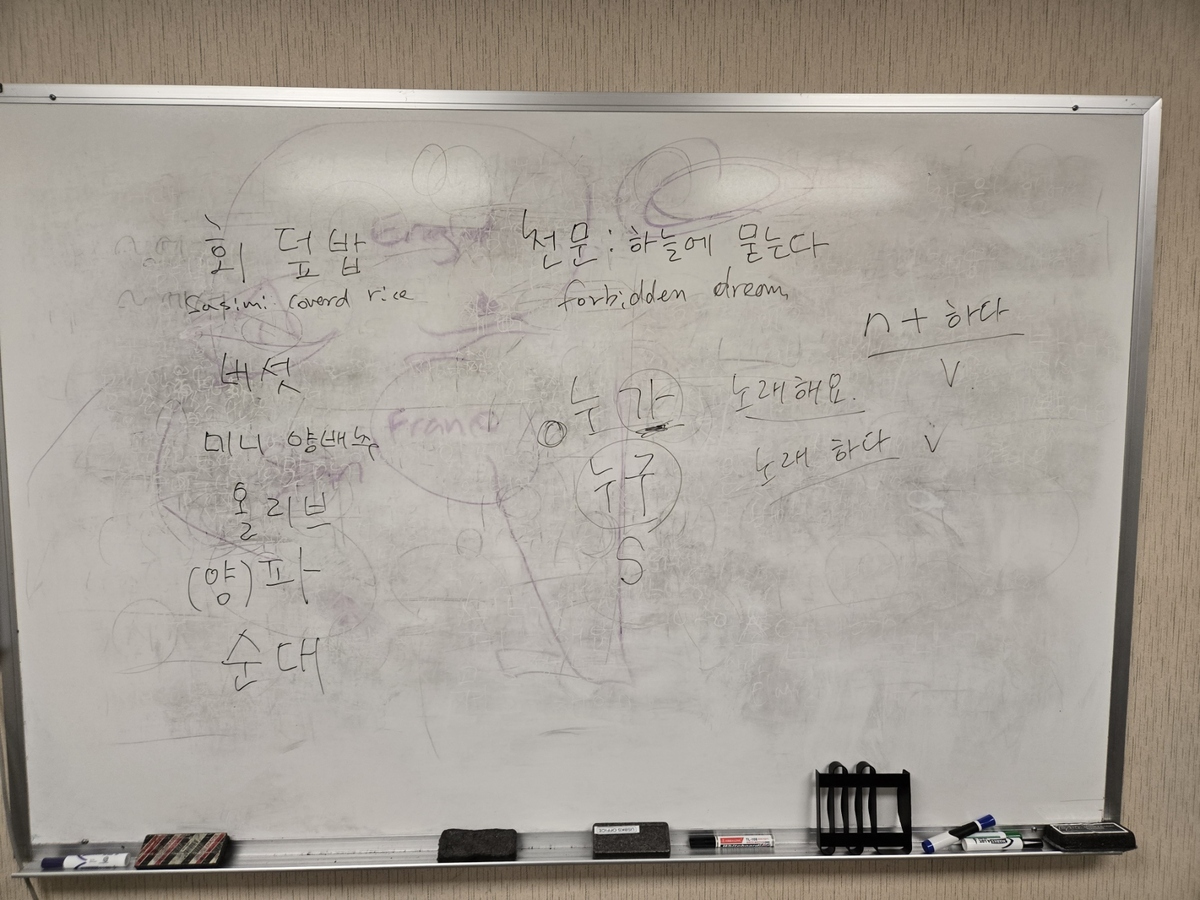 회 덮밥
Sasimi coverd rice
버섯
미니 양배추
올리브
(양)파
순대
천문: 하늘에 묻는다
forbidden dream
누가
누구
S
n + 하다
v.
노래해요.
노래 하다 v
Franc